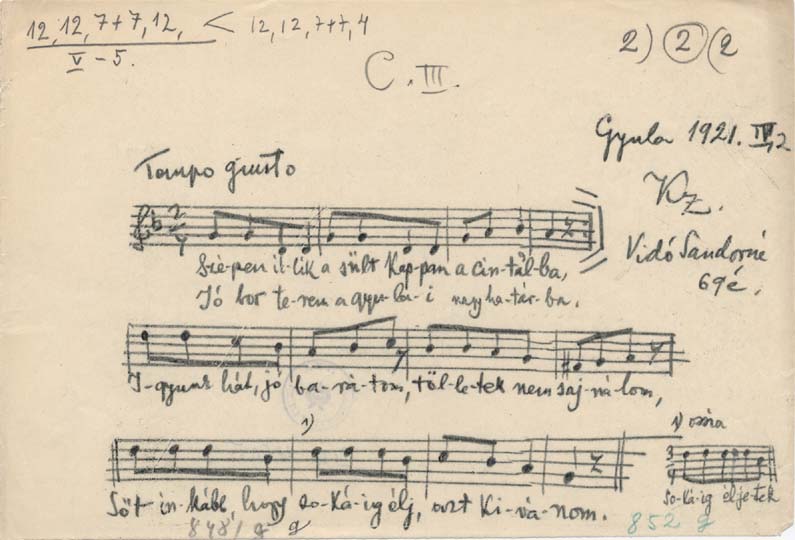 12, 12, 7+7, 12, < 12, 12, 7+7, 4
V - 5.
C. III.
2) 2 (2
Gyula 1921. IV. 2
Kz.
Vidó Sándorné
69 é.
Tempo giusto
2
4
Szé-pen il-lik a sült kap-pan a cin-tál-ba,
Jó bor te-rem a gyu-la-i nagy ha-tár-ba.
I-gyunk hát, jó ba-rá-tom, töl-le-tek nem saj-ná-lom,
1)
1)
3
4
Sőt in-kább, hogy so-ká-ig élj, azt ki-vá-nom.
so-ká-ig élje-tek
848/g g
852 g